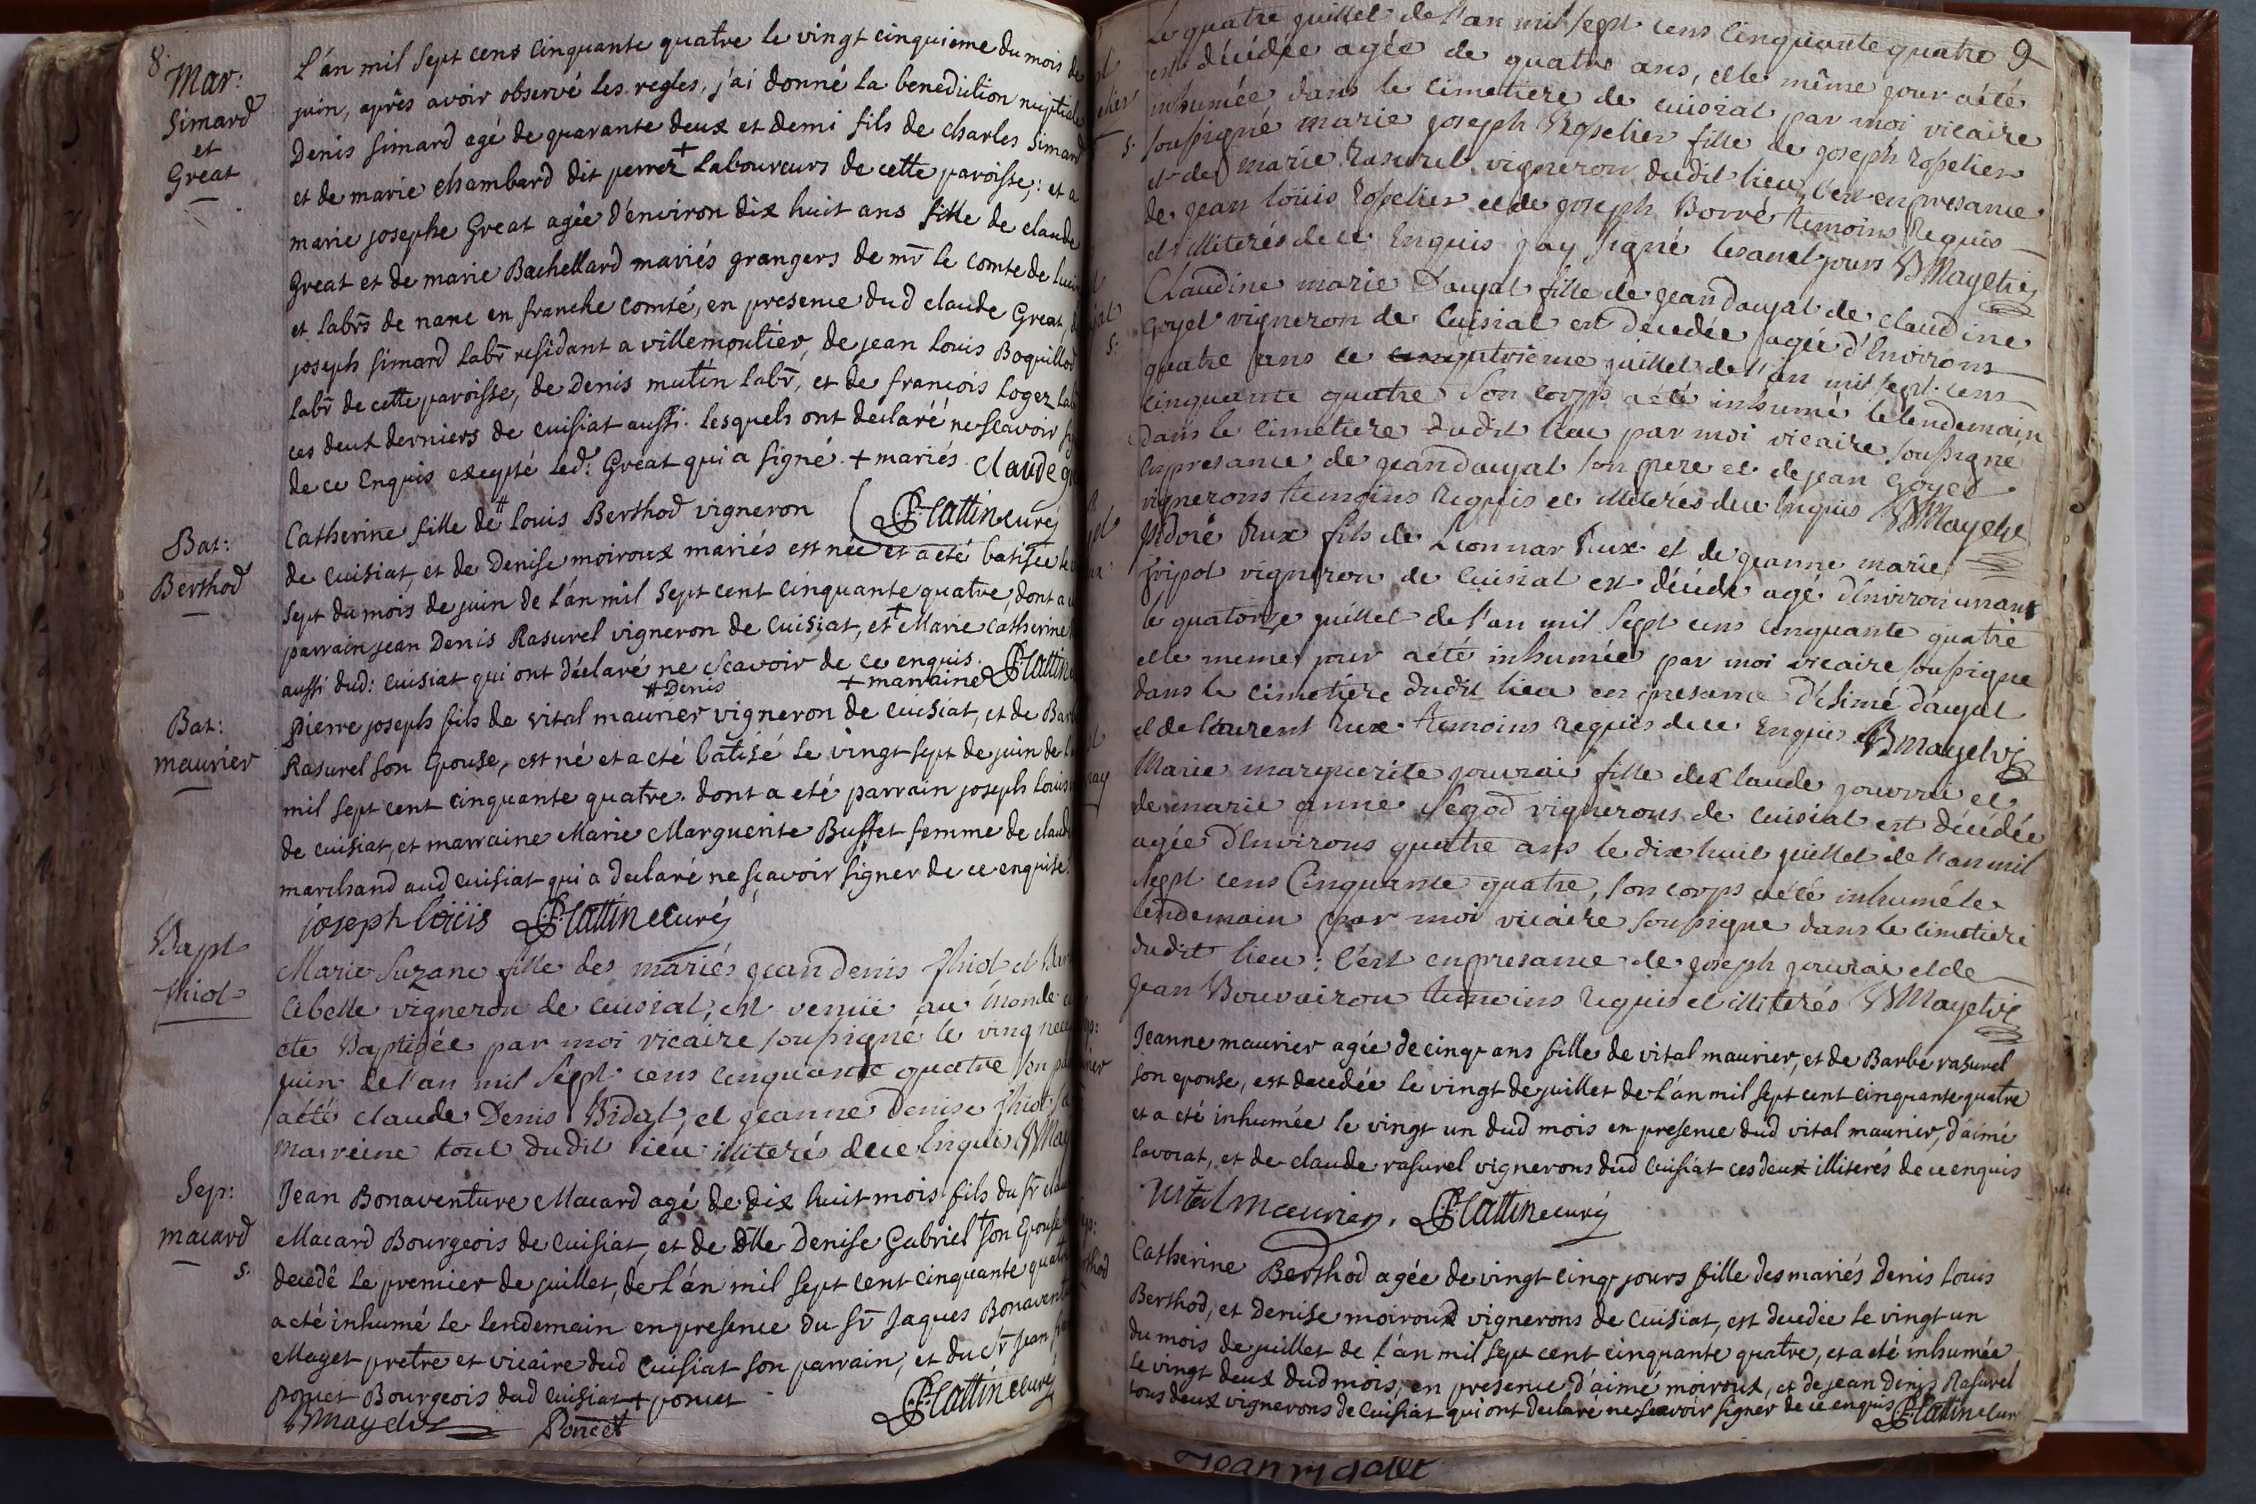 8.
Mar:
Simard
et
Great
L'an mil sept cens cinquante quatre le vingt cinquieme du mois de
juin, après avoir observé les regles, j'ai donné la benediction nuptiale
Denis Simard agé de quarante deux et demi fils de charles Simard
et de marie chambard dit perrez + Laboureurs de cette paroisse; et a
marie josephe Great agée d'environ dix huit ans fille de claude
Great et de marie Bachellard mariés grangers de mr le comte de
et labrs de nanc en franche comté, en presence dud claude Great,
joseph simard labr residant a villemoutier, de jean louis Boquillod
labr de cette paroisse, de Denis mutin labr, et de francois Logez
ces deux derniers de cuisiat aussi. Lesquels ont declaré ne scavoir
de ce Enquis excepté led: Great qui a signé. + mariés. Claude
Cattin curé
Bat:
Berthod
Catherine fille de # louis Berthod vigneron
de cuisiat, et de Denise moiroux mariés est née et a eté batisée le
sept du mois de juin de L'an mil sept cent cinquante quatre, dont a
parrain jean Denis Rasurel vigneron de Cuisiat, et + Marie catherine
aussi dud: cuisiat qui ont déclaré ne scavoir de ce enquis. Cattin
# Denis + marraine
Bat:
maurier
Pierre joseph fils de vital maurier vigneron de cuisiat, et de
Rasurel son Epouse, est né et a eté batisé le vingt sept de juin de
mil sept cent cinquante quatre. dont a eté parrain joseph Louis
de cuisiat, et marraine Marie Marguerite Buffet femme de claude
marchand aud cuisiat qui a declaré ne sçavoir signer de ce enquise.
joseph loüis Cattin Curé
Bapt
fhiol
Marie Suzane fille des mariés jean denis fhiol et
Cebelle vigneron de cuisiat, est venüe au monde
ete Baptisée par moi vicaire soussigné le ving
juin de l'an mil sept cens cinquante quatre son
aété claude Denis Vidal, et jeanne Denise fhiol
marreine tout dudit lieu illiterés dece Enquis
Sep:
macard
s.
Jean Bonaventure Macard agé de dix huit mois fils du sr
Macard Bourgeois de cuisiat, et de dlle Denise Gabriel + son Epouse
decedé le premier de juillet, de L'an mil sept cent cinquante
a eté inhumé le lendemain en presence du sr Jaques
Mayet pretre et vicaire dud cuisiat son parrain, et du sr jean
poncet Bourgeois dud cuisiat + poncet
Mayet
Poncet
Cattin Curé
9
Le quatre juillet de l'an mil sept cens cinquante quatre
est décédée agée de quatre ans, et le même jour aété
inhumée dans le cimetiere de cuisiat par moi vicaire
soussigné marie joseph Rosselier fille de joseph rosselier
et de marie Rasurel vigneron dudit lieu, c'est en presance
de jean loüis rosselier et de joseph Borré temoins Requis
et illiterés dece Enquis jay signé les an et jours Mayet
Claudine marie Daujat fille de jean daujat de claudine
goyet vigneron de Cuisiat est décedée agée d'Environs
quatre ans le juillet de l'an mil sept cens
cinquante quatre son corps aété inhumé le lendemain
dans le cimetiere dudit lieu par moi vicaire soussigné
en presance de jean daujat son pere et de jean goyet
vignerons temoins requis et illiterés dece Enquis Mayet
rux fils de Leonnar rux et de jeanne marie
vigneron de Cuisiat est décédé agé d'Environ un ans
le quatorze juillet de l'an mil sept cens cinquante quatre
et le meme jour aété inhumée par moi vicaire soussigne
dans le cimetiere dudit lieu en presance d'Esimé daujat
et de laurent rux temoins requis dece Enquis. Mayet
Marie marguerite jouvrai fille de claude jouvrai et
de marie anne vignerons de cuisiat est décédée
agée d'Environs quatre ans le dix huit juillet de l'an mil
sept cens Cinquante quatre, son corps aété inhumé le
lendemain par moi vicaire soussigne dans le cimetiere
dudit lieu; C'est en presance de joseph jouvrai et de
jean Bouvairon temoins requis et illiterés Mayet
Jeanne maurier agée de cinq ans fille de vital maurier, et de Barbe rasurel
son epouse, est decedée le vingt de juillet de L'an mil sept cent cinquante quatre
et a eté inhumée le vingt un dud mois en presence dud vital maurier, d'aimé
lavorat, et de claude rasurel vignerons dud Cuisiat ces deux illiterés de ce enquis
vital maurier. Cattin curé
Catherine Berthod agée de vingt cinq jours fille des mariés Denis Louis
Berthod, et Denise moiroud vignerons de Cuisiat, est decedée le vingt un
du mois de juillet de L'an mil sept cent cinquante quatre, et a eté inhumée
le vingt deux dud mois, en presence d'aimé moiroux, et de jean Denis Rasurel
tous deux vignerons de Cuisiat qui ont declaré ne scavoir signer de ce enquis Cattin Cur